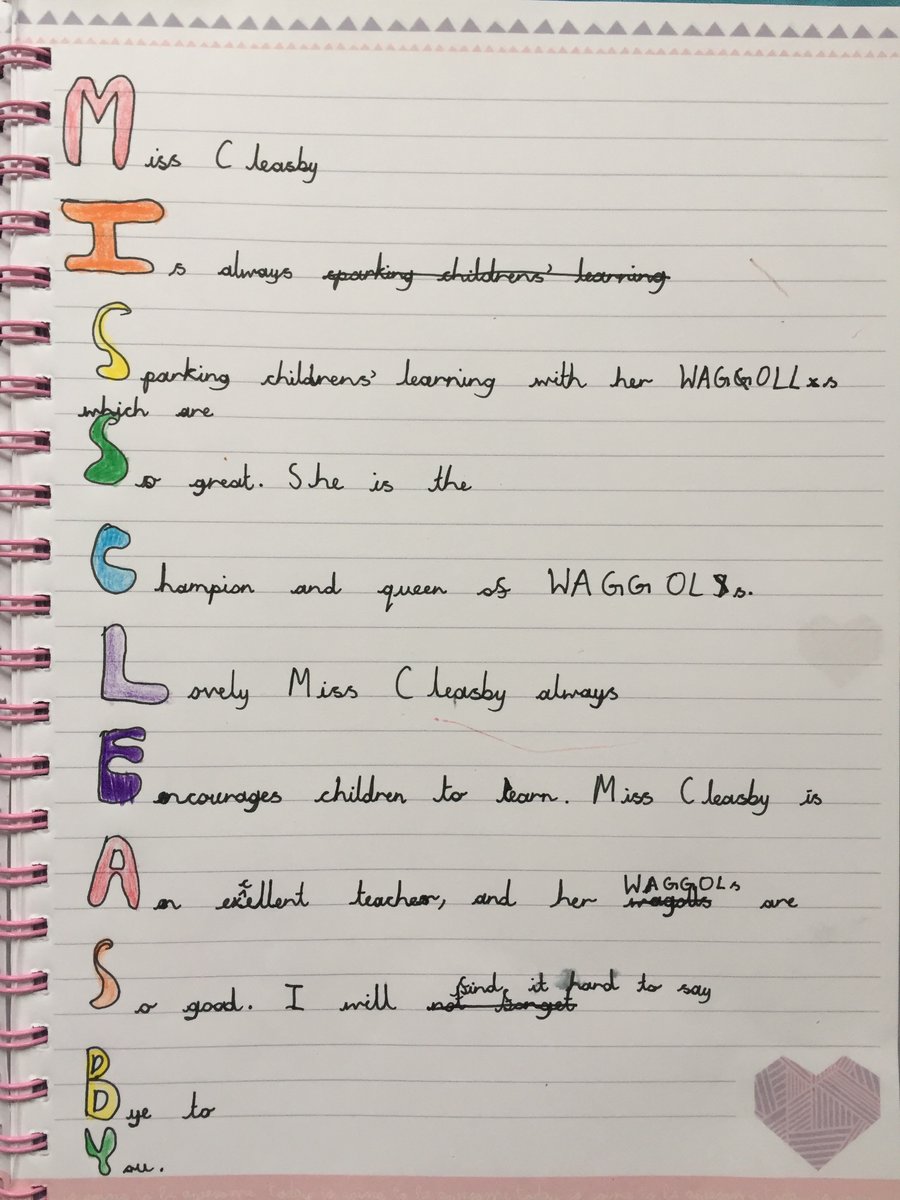 Miss Cleasby
Is always sparking childrens' learning
Sparking childrens' learning with her WAGGOLLs
which are
So great. She is the
Champion and queen of WAGGOLs.
Lovely Miss Cleasby always
Encourages children to learn. Miss Cleasby is
An excellent teacher, and her wagolls WAGGOLs are
So good. I will not forget find it hard to say
Bye to
You.